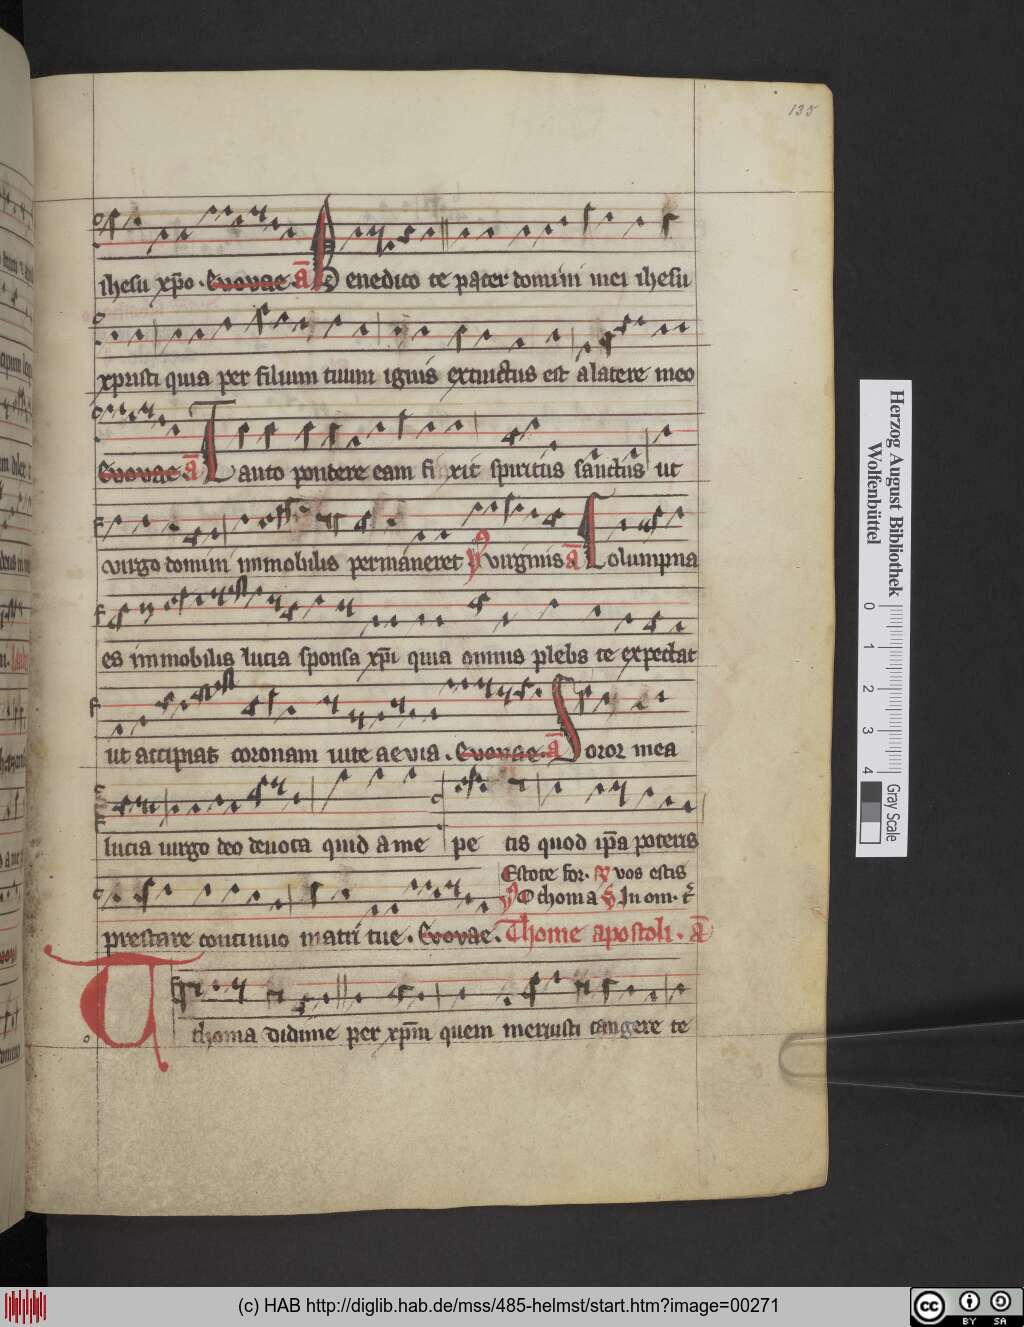 135
ihesu xp̄o · Euouae · ā Benedico te pater domini mei ihesu
xpristi quia per filium tuum ignis extinctus est a latere meo
Euouae · ā Tanto pondere eam fixit spiritus sanctus ut
virgo domini immobilis permaneret virginis ā Columpna
es immobilis lucia sponsa xp̄i quia omnis plebs te expectat
ut accipias coronam vite aevia . Euouae · ā Soror mea
lucia virgo deo devota quid a me petis quod ip̄a poteris
Estote for · vos estis
O thoma In om ·
prestare continuo matri tue . Euouae . Thome apostoli · ā
O thoma didime per xp̄m quem meruisti tangere te
Herzog August Bibliothek
Wolfenbüttel
0 1 2 3 4
Gray Scale
(c) HAB http://diglib.hab.de/mss/485-helmst/start.htm?image=00271
cc BY SA